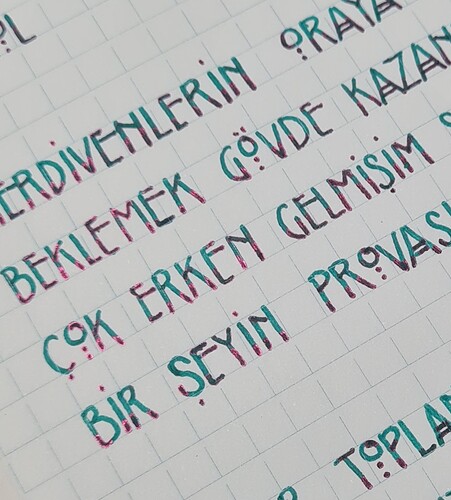 ERDİVENLERİN ORAYA
BEKLEMEK GÖVDE KAZAN
ÇOK ERKEN GELMİŞİM
BİR ŞEYİN PROVASI
TOPLA